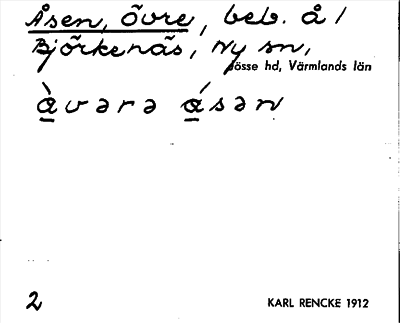 Åsen, Övre, beb. å /
Björkenäs, Ny sn,
Jösse hd, Värmlands län
a̱̍vərə á̱sən
2
KARL RENCKE 1912